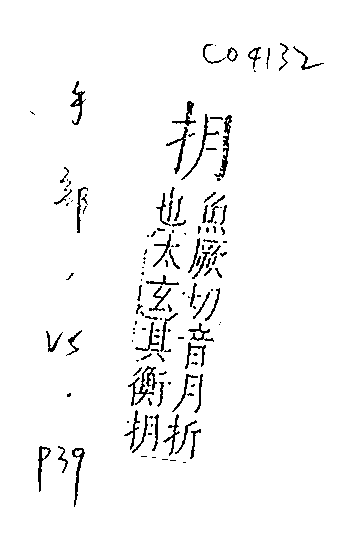 C04132
抈
魚厥切音月折
也太玄其衡抈
手部,VS.P39